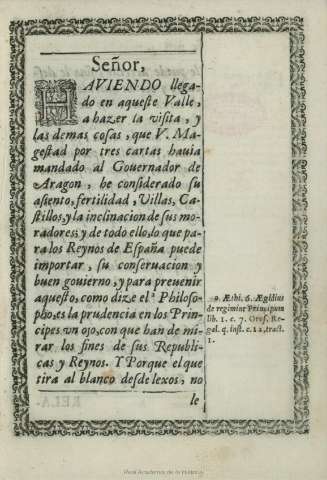 Señor,
HAVIENDO llega-
do en aqueste Valle,
a hazer la visita, y
las demas cosas, que V. Ma-
gestad por tres cartas hauia
mandado al Gouernador de
Aragon, he considerado su
asiento, fertilidad, Villas, Ca-
stillos, y la inclinacion de sus mo-
radores; y de todo ello, lo que pa-
ra los Reynos de España puede
importar, su conseruacion y
buen gouierno, y para preuenir
aquesto, como dize el ª Philoso-
pho, es la prudencia en los Prin-
cipes vn ojo, con que han de mi-
rar los fines de sus Republi-
cas y Reynos. Y Porque el que
tira al blanco desde lexos, no
le
a. Æthi. 6. Ægidius
de regimine Principum
lib. 1. c. 7. Oros. Re-
gal. q. inst. c. 12, tract.
1.
Real Academia de la Historia